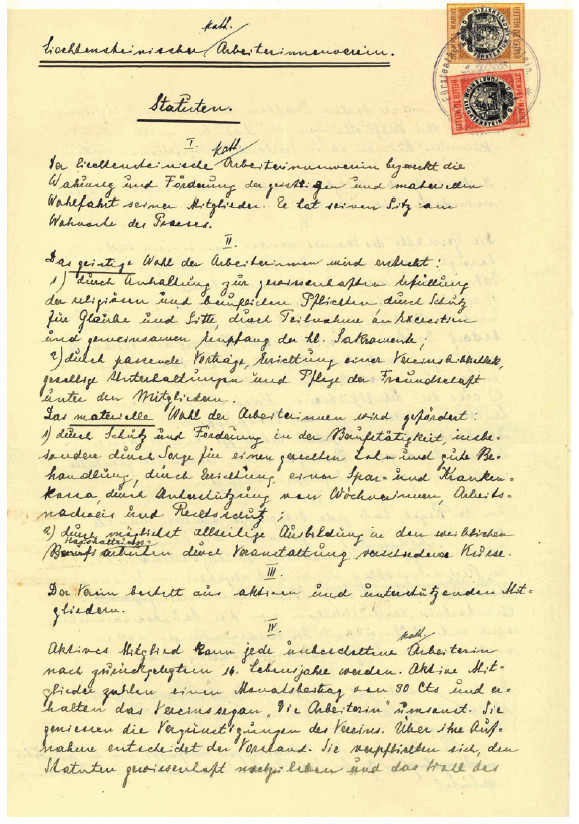 kath.
Liechtensteinischer / Arbeiterinnenverein.
Statuten.
I.
kath.
Der liechtensteinische / Arbeiterinnenverein bezweckt die
Wahrung und Förderung der geistigen und materiellen
Wohlfahrt seiner Mitglieder. Er hat seinen Sitz am
Wohnorte des Praeses.
II.
Das geistige Wohl der Arbeiterinnen wird erstrebt:
1) durch Anhaltung zur gewissenhaften Erfüllung
der religiösen und beruflichen Pflichten durch Schutz
für Glaube und Sitte, durch Teilnahme an Exerzitien
und gemeinsamen Empfang der hl. Sakramente;
2) durch passende Vorträge, Errichtung einer Vereinsbibliothek,
gesellige Unterhaltungen und Pflege der Freundschaft
unter den Mitgliedern.
Das materielle Wohl der Arbeiterinnen wird gefördert:
1) durch Schutz und Förderung in der Berufstätigkeit, insbe-
sondere durch Sorge für einen gerechten Lohn und gute Be-
handlung, durch Errichtung einer Spar- und Kranken-
kassa, durch Unterstützung von Wöchnerinnen, Arbeits-
nachweis und Rechtsschutz;
2) durch möglichst allseitige Ausbildung in den weiblichen
Berufsarbeiten durch Veranstaltung verschiedener Kurse.
III
Der Verein besteht aus aktiven und unterstützenden Mit-
gliedern.
IV.
kath.
Aktives Mitglied kann jede unbescholtene / Arbeiterin
nach zurückgelegtem 16. Lebensjahre werden. Aktive Mit-
glieder zahlen einen Monatsbeitrag von 30 Cts und er-
halten das Vereinsorgan „Die Arbeiterin" umsonst. Sie
geniessen die Vergünstigungen des Vereins. Über ihre Auf-
nahme entscheidet der Vorstand. Sie verpflichten sich, den
Statuten gewissenhaft nachzuleben und das Wohl des